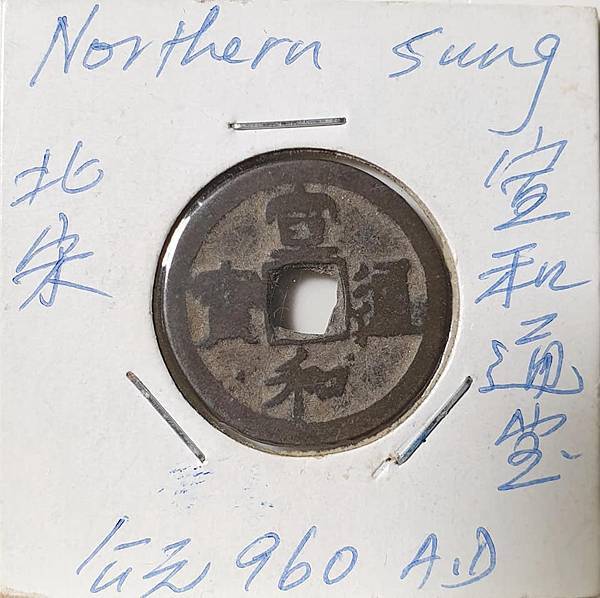 Northern Sung
北宋
宣和通寶
宣和通宝
公元 960 A.D